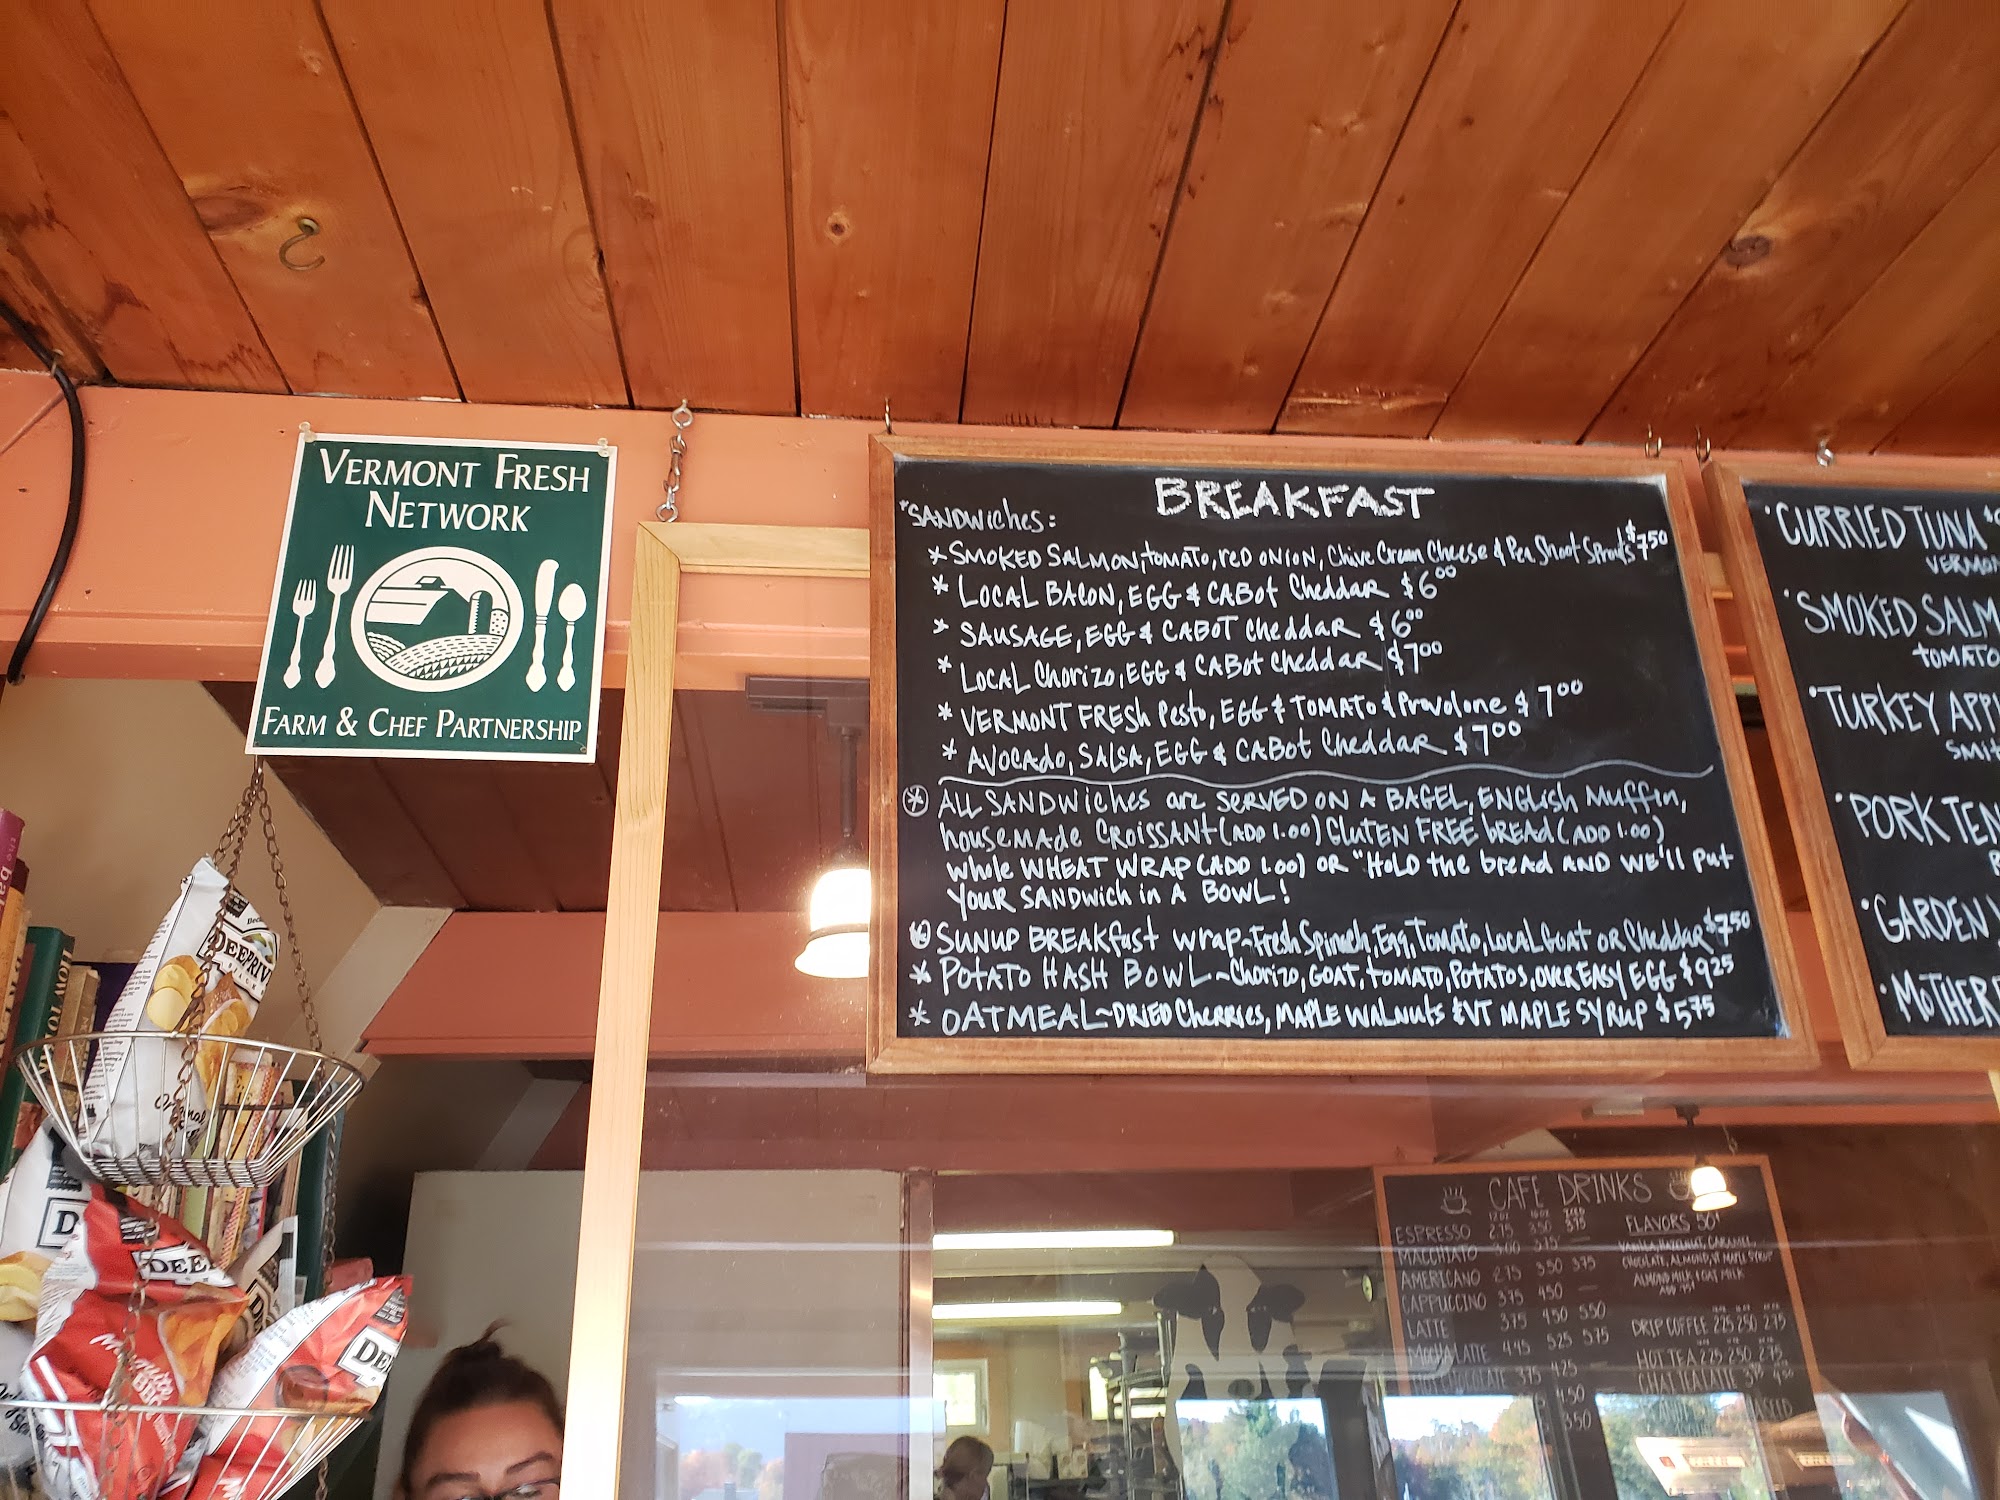 VERMONT FRESH
NETWORK
FARM & CHEF PARTNERSHIP
BREAKFAST
*SANDWiches:
* SMOKED SALMON, tomato, red onion, Chive Cream Cheese & Pea Shoot Sprouts $7.50
* LOCAL BACON, EGG & CABot Cheddar $6.00
* SAUSAGE, EGG & CABOT Cheddar $6.00
* LOCAL Chorizo, EGG & CABot Cheddar $7.00
* VERMONT FRESh Pesto, EGG & TOMATo & Provolone $7.00
* AVOCAdo, SALSA, EGG & CABot Cheddar $7.00
* ALL SANDWiches are SERVED ON A BAGEL, ENGLish Muffin,
housemade CROISSANT (ADD 1.00) GLUTEN FREE bREAD (ADD 1.00)
Whole WHEAT WRAP (ADD 1.00) OR "HOLD the bread AND WE'll put
YOUR SANDWich in A BOWL!
SUNUP BREAKfast wrap~Fresh Spinach, Egg, Tomato, Local Goat or Cheddar $7.50
* POTATO HASH BOWL~Chorizo, GOAT, tomato, Potatos, over EASY EGG $9.25
* OATMEAL~DRIED Cherries, MAPLE WALNUTS & VT MAPLE SYRUP $5.75
•CURRIED TUNA
VERMON
•SMOKED SALM
TOMATO
•TURKEY APPL
SMIT
•PORK TEN
•GARDEN
•MOTHER
CAFE DRINKS
ESPRESSO 2.75 3.50 3.75
MACCHIATO 3.00 3.75 —
AMERICANO 2.75 3.50 3.75
CAPPUCCINO 3.75 4.50 —
LATTE 3.75 4.50 5.50
MOCHA LATTE 4.45 5.25 5.75
3.75 4.25 —
4.50
3.50
FLAVORS 50¢
VANILLA, HAZELNUT, CARAMEL,
CHOCOLATE, ALMOND, VT MAPLE SYRUP
ALMOND MILK & OAT MILK
DRIP COFFEE 2.25 2.50 2.75
HOT TEA 2.25 2.50 2.75
CHAI TEA LATTE 3.75 4.50
DEEP RIVER
Original
DEE
HOW TO